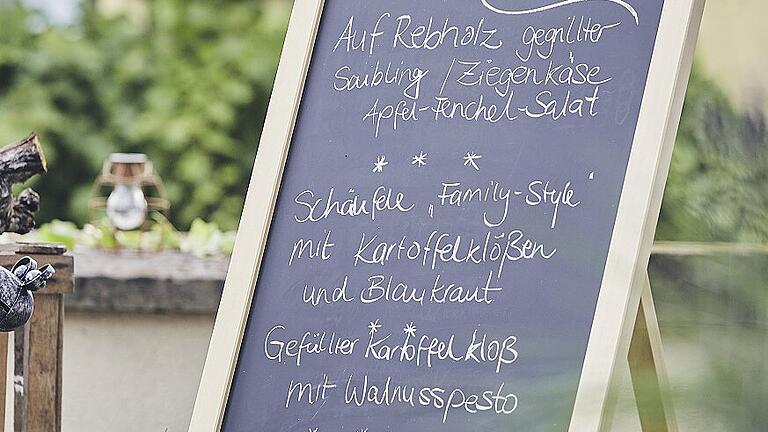 Auf Rebholz gegrillter
Saibling / Ziegenkäse
Apfel-Fenchel-Salat
* * *
Schäufele „Family-Style"
mit Kartoffelklößen
und Blaukraut
* *
Gefüllter Kartoffelkloß
mit Walnusspesto